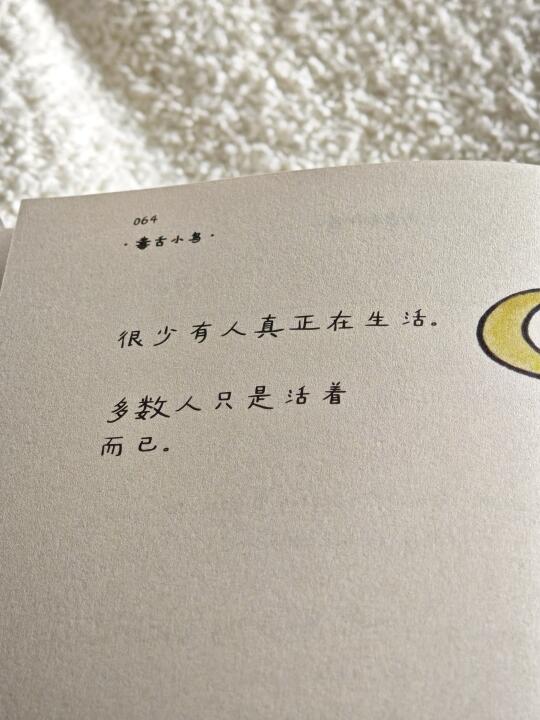 064
·毒舌小鸟·
很少有人真正在生活。
多数人只是活着
而已。